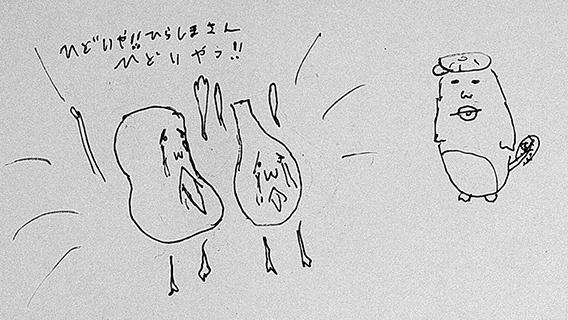 ひどいや!!ひらしまさん
ひどいやっ!!